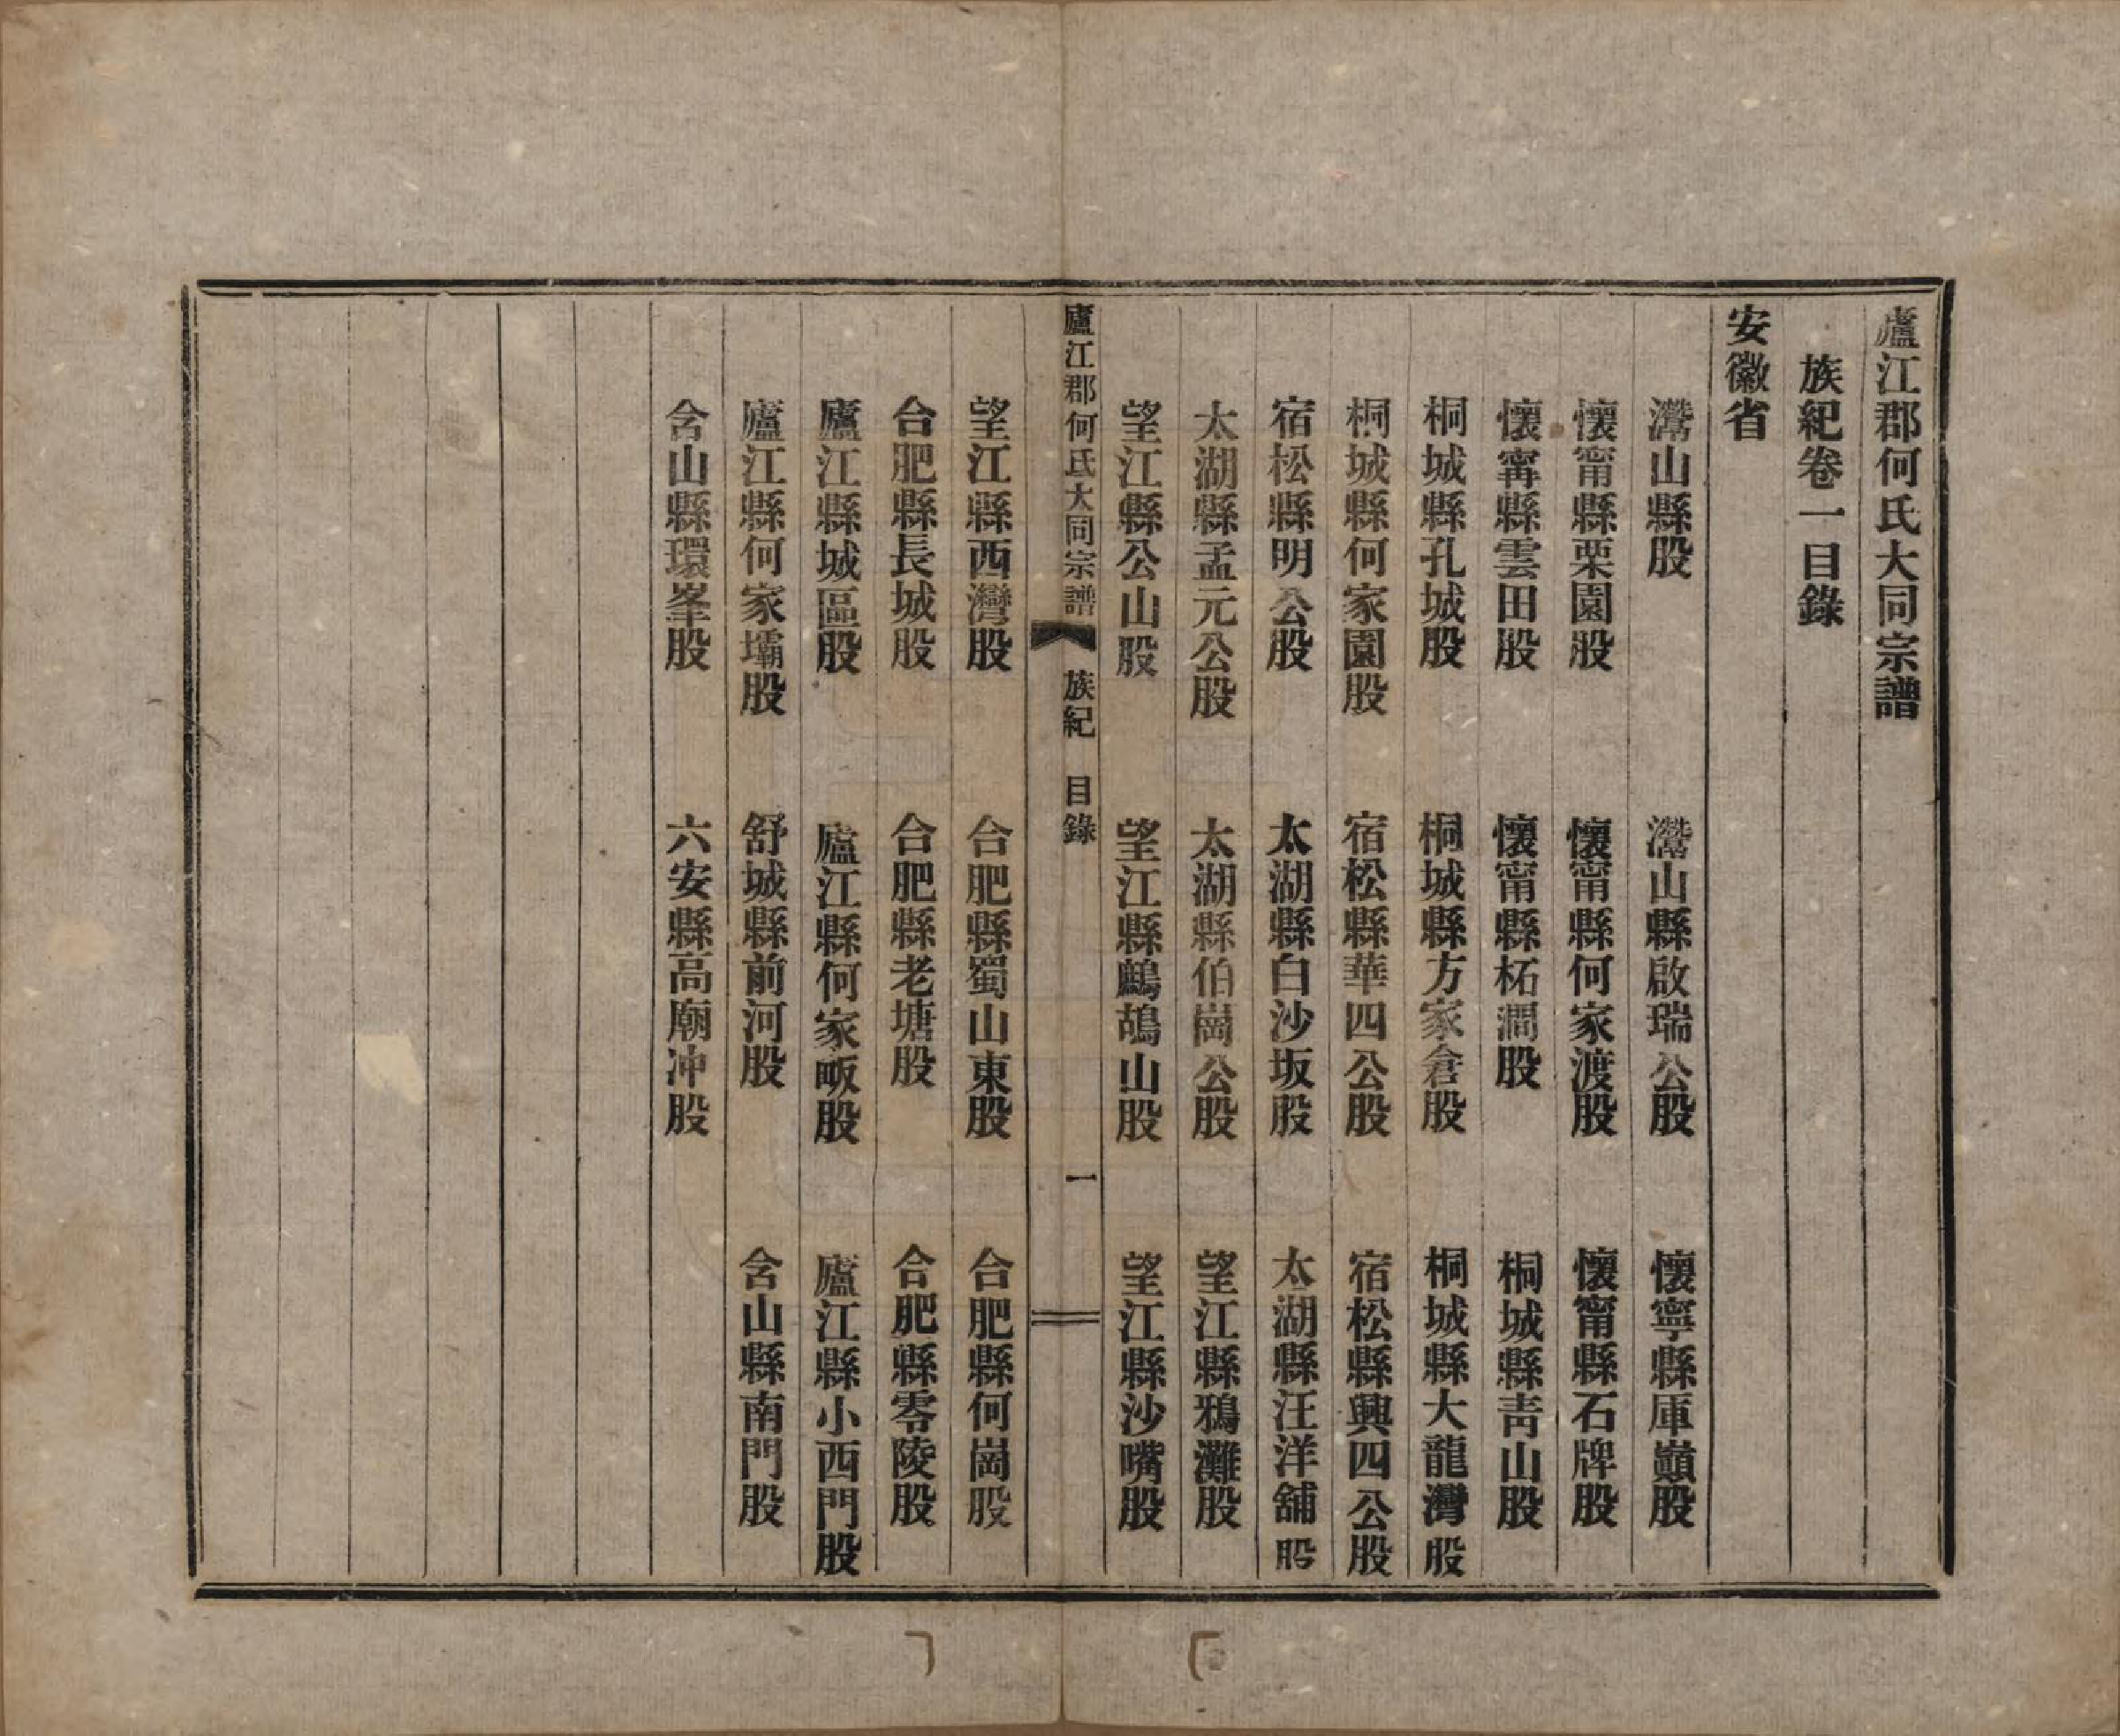 廬江郡何氏大同宗譜
族紀卷一目錄
安徽省
灊山縣股　灊山縣啟瑞公股　懷寧縣庫巔股
懷甯縣栗園股　懷甯縣何家渡股　懷甯縣石牌股
懷甯縣雲田股　懷甯縣柘澗股　桐城縣青山股
桐城縣孔城股　桐城縣方家倉股　桐城縣大龍灣股
桐城縣何家園股　宿松縣華四公股　宿松縣興四公股
宿松縣明公股　太湖縣白沙坂股　太湖縣汪洋舖股
太湖縣孟元公股　太湖縣伯崗公股　望江縣鴉灘股
望江縣公山股　望江縣鷓鴣山股　望江縣沙嘴股
廬江郡何氏大同宗譜　族紀　目錄　一
望江縣西灣股　合肥縣蜀山東股　合肥縣何崗股
合肥縣長城股　合肥縣老塘股　合肥縣零陵股
廬江縣城區股　廬江縣何家畈股　廬江縣小西門股
廬江縣何家壩股　舒城縣前河股　含山縣南門股
含山縣環峯股　六安縣高廟冲股